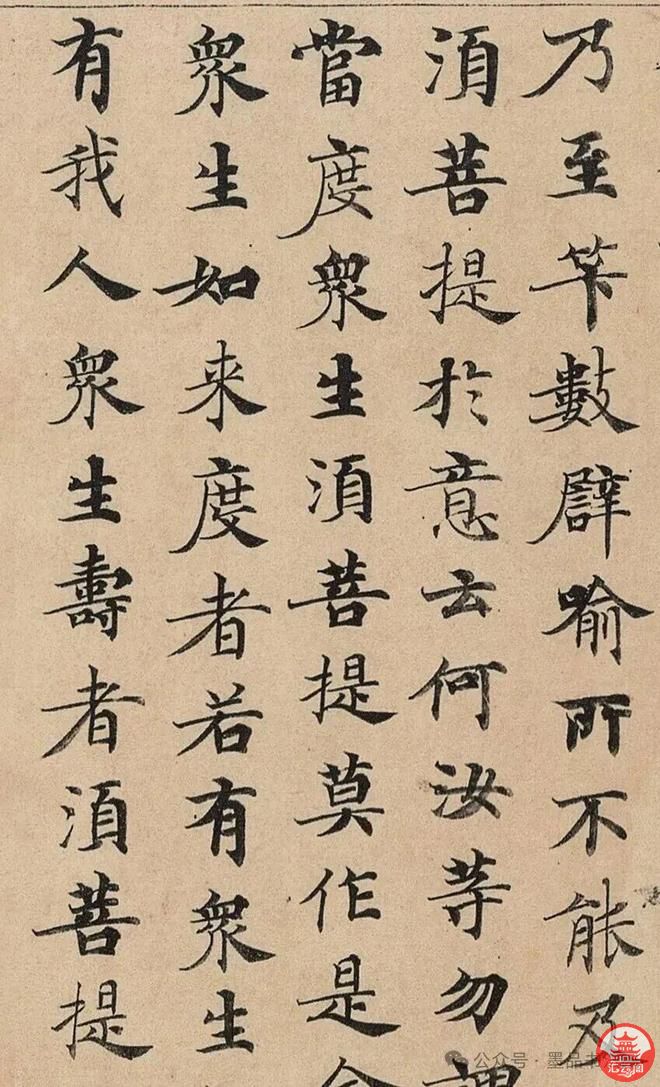 乃至笇數譬喻所不能及
湏菩提於意云何汝等勿
當度衆生湏菩提莫作是
衆生如来度者若有衆生
有我人衆生壽者湏菩提
公众号·墨品书